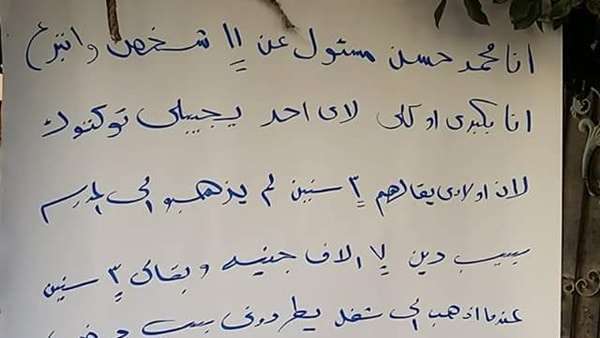 انا محمد حسن مسئول عن 11 شخص واتبرع
انا بكبدى او كلى لاى احد يجيبلى توكتوك
لان اولادى بقالهم 3 سنين لم يذهبو الى المدرسه
بسبب دين الاف جنيه وبقالى 3 سنين
عندما اذهب الى شغل يطردونى بسبب